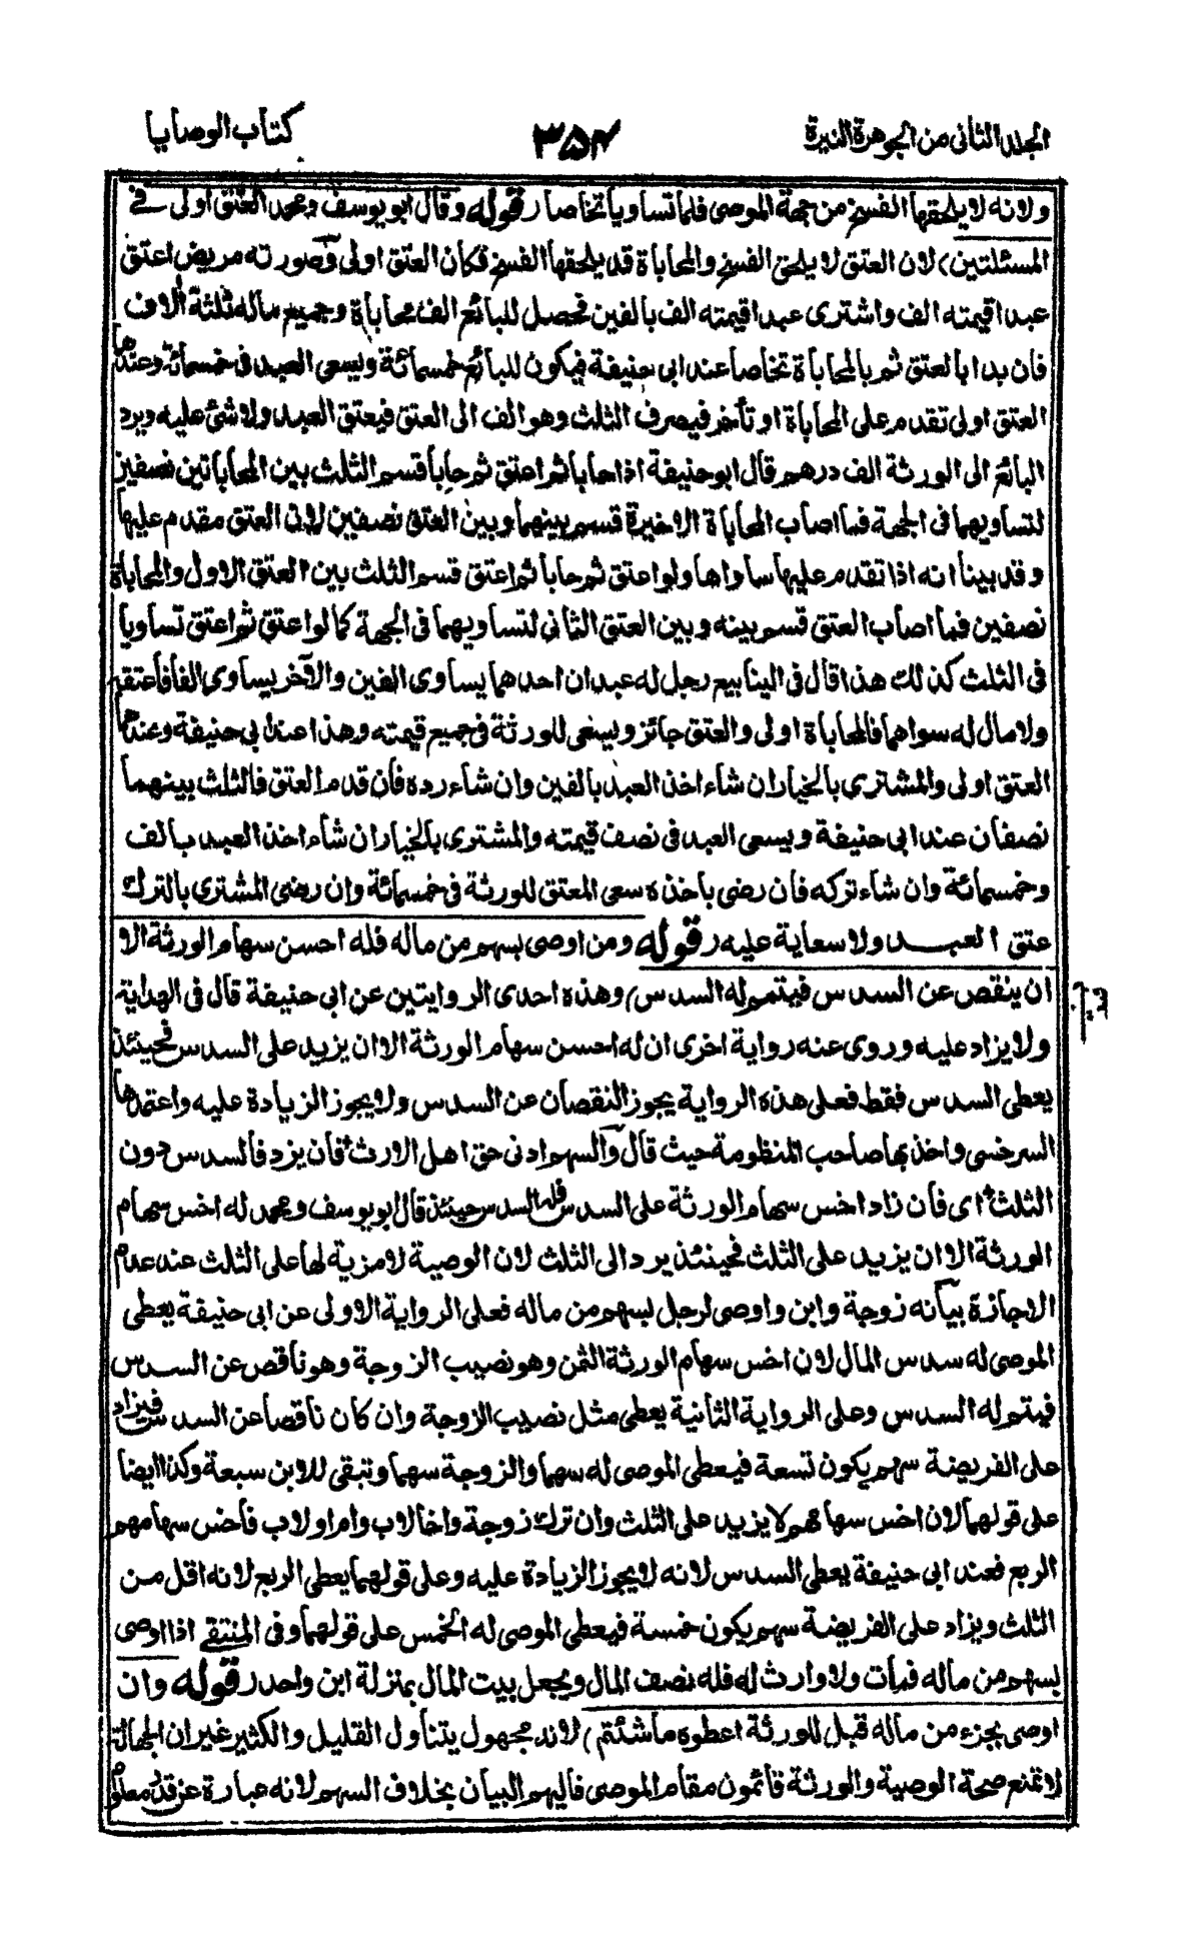 الجلد الثانى من الجوهرة النيرة
۳۵۴
كتاب الوصايا
ولانه لا يلحقها الفسخ من جهة الموصى فلما تساويا تخاصا (قوله وقال ابو يوسف ومحمد العتق اولى فى
المسئلتين) لان العتق لا يلحق الفسخ والمحاباة قد يلحقها الفسخ فكان العتق اولى وصورته مريض اعتق
عبدا قيمته الف واشترى عبدا قيمته الف بالفين فحصل للبائع الف محاباة وجميع ماله ثلثة آلاف
فان بدا بالعتق ثم بالمحاباة تخاصا عند ابى حنيفة فيكون للبائع خمسمائة ويسعى العبد فى خمسمائة وعندهما
العتق اولى تقدم على المحاباة او تأخر فيصرف الثلث وهو الف الى العتق فيعتق العبد ولا شئ عليه ويرد
البائع الى الورثة الف درهم قال ابو حنيفة اذا حابا ثم اعتق ثم حابا قسم الثلث بين المحاباتين نصفين
لتساويهما فى الجهة فما اصاب المحاباة الاخيرة قسم بينهما وبين العتق نصفين لان العتق مقدم عليها
وقد بينا انه اذا تقدم عليها ساواها ولو اعتق ثم حابا ثم اعتق قسم الثلث بين العتق الاول والمحاباة
نصفين فما اصاب العتق قسم بينه وبين العتق الثانى لتساويهما فى الجهة كما لو اعتق ثم اعتق تساويا
فى الثلث كذلك هذا قال فى الينابيع رجل له عبدان احدهما يساوى الفين والآخر يساوى الفا فاعتقه
ولا مال له سواهما فالمحاباة اولى والعتق جائز ويسعى للورثة فى جميع قيمته وهذا عند ابى حنيفة وعندهما
العتق اولى والمشترى بالخيار ان شاء اخذ العبد بالفين وان شاء رده فان قدم العتق فالثلث بينهما
نصفان عند ابى حنيفة ويسعى العبد فى نصف قيمته والمشترى بالخيار ان شاء اخذ العبد بالف
وخمسمائة وان شاء تركه فان رضى باخذه سعى المعتق للورثة فى خمسمائة وان رضى المشترى بالترك
عتق العبد ولا سعاية عليه (قوله ومن اوصى بسهم من ماله فله احسن سهام الورثة الا
ان ينقص عن السدس فيتمم له السدس) وهذه احدى الروايتين عن ابى حنيفة قال فى الهداية
ولا يزاد عليه وروى عنه رواية اخرى ان له احسن سهام الورثة الا ان يزيد على السدس فحينئذ
يعطى السدس فقط فعلى هذه الرواية يجوز النقصان عن السدس ولا يجوز الزيادة عليه واعتمدها
السرخسى واخذ بها صاحب المنظومة حيث قال والسهم ادنى حق اهل الارث فان يزد فالسدس دون
الثلث اى فان زاد اخس سهام الورثة على السدس فله السدس حينئذ قال ابو يوسف ومحمد له اخس سهام
الورثة الا ان يزيد على الثلث فحينئذ يرد الى الثلث لان الوصية لا مزية لها على الثلث عند عدم
الاجازة بيانه زوجة وابن واوصى لرجل بسهم من ماله فعلى الرواية الاولى عن ابى حنيفة يعطى
الموصى له سدس المال لان اخس سهام الورثة الثمن وهو نصيب الزوجة وهو ناقص عن السدس
فيتم له السدس وعلى الرواية الثانية يعطى مثل نصيب الزوجة وان كان ناقصا عن السدس فيزاد
على الفريضة سهم يكون تسعة فيعطى الموصى له سهما والزوجة سهما وتبقى للابن سبعة وكذا ايضا
على قولهما لان اخس سهامهم لا يزيد على الثلث وان ترك زوجة واخا لاب وام او لاب فاخس سهامهم
الربع فعند ابى حنيفة يعطى السدس لانه لا يجوز الزيادة عليه وعلى قولهما يعطى الربع لانه اقل من
الثلث ويزاد على الفريضة سهم يكون خمسة فيعطى الموصى له الخمس على قولهما وفى المنتقى اذا اوصى
بسهم من ماله فمات ولا وارث له فله نصف المال ويجعل بيت المال بمنزلة ابن واحد (قوله وان
اوصى بجزء من ماله قيل للورثة اعطوه ما شئتم) لانه مجهول يتناول القليل والكثير غير ان الجهالة
لا تمنع صحة الوصية والورثة قائمون مقام الموصى فاليهم البيان بخلاف السهم لانه عبارة عن قدر معلوم